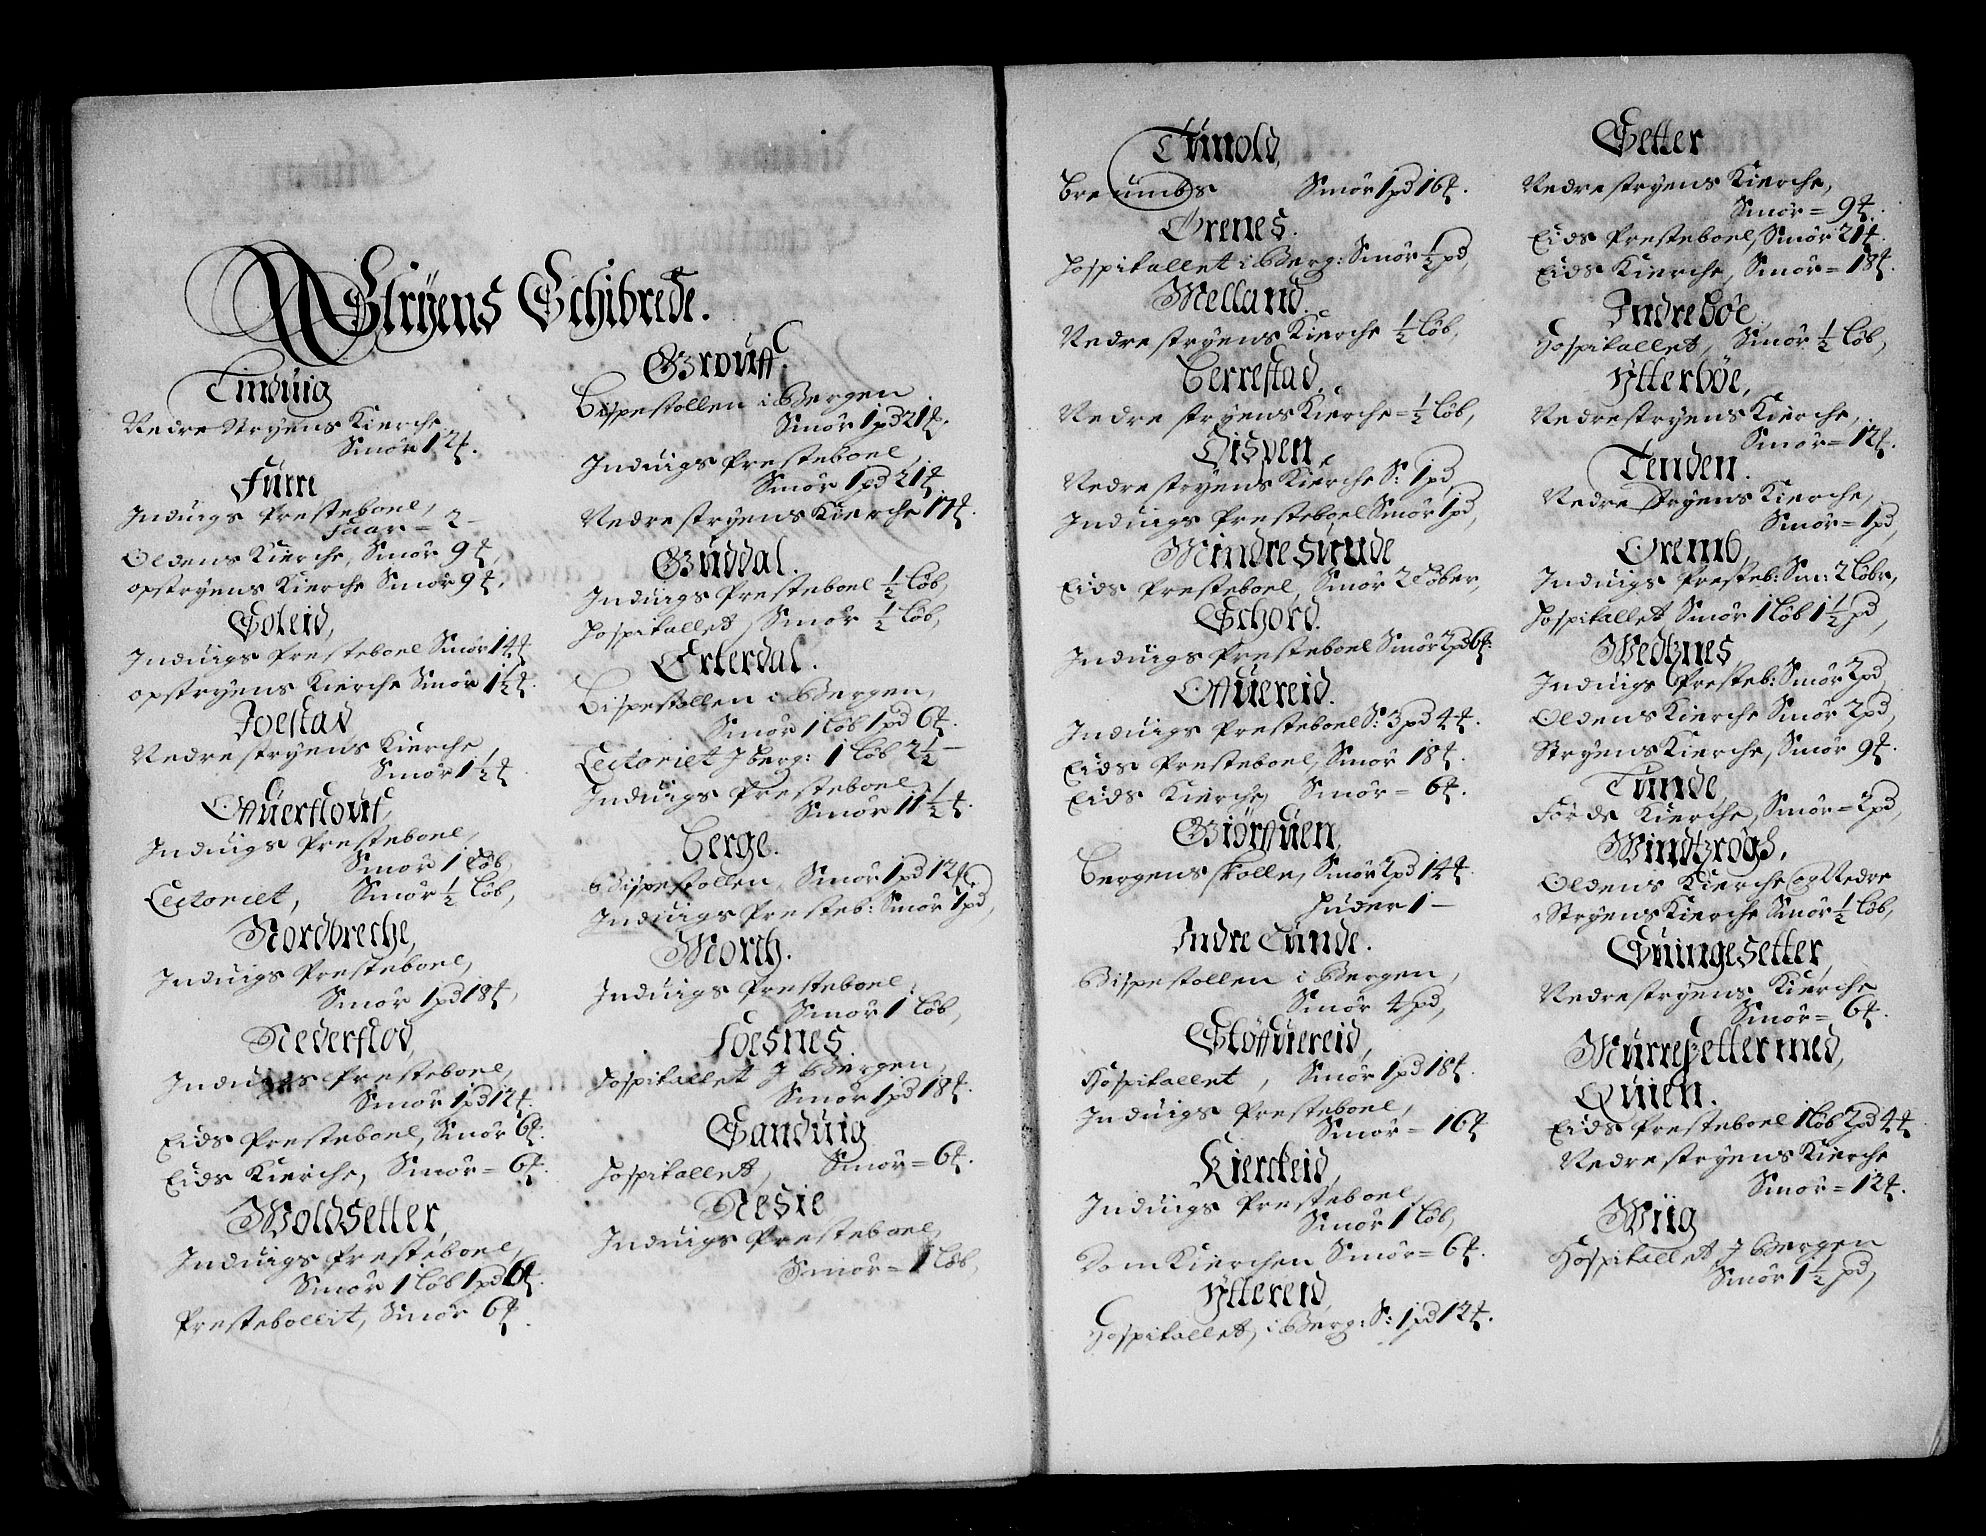 Stryens Schibrede.
Tinduig
Nedre Stryens Kierche
Smör 12 ℔.
Furre
Induigs Presteboel,
Faar = 2 –
Oldens Kierche, Smör 9 ℔,
opstryens Kierche Smör 9 ℔.
Soleid,
Induigs Presteboel Smör 14 ℔.
opstryens Kierche Smör 1½ ℔.
Joestad
Nedre stryens Kierche,
Smör 1½ ℔
Offuerflouf,
Induigs Presteboel,
Smör 1 Löb,
Lectoriet, Smör ½ Löb,
Nordbreche,
Induigs Presteboel,
Smör 1 pd 18 ℔,
Nederstad,
Induigs Presteboel,
Smör 1 pd 12 ℔.
Eids Presteboel, Smör 6 ℔.
Eids Kierche, Smör = 6 ℔.
Woldsetter,
Induigs Presteboel,
Smör 1 löb 1 pd 6 ℔.
Prestebollit, Smör 6 ℔.
Grouff.
Bispestollen i Bergen
Smör 1 pd 21 ℔.
Induigs Presteboel,
Smör 1 pd 21 ℔
Nedre stryens Kierche 17 ℔.
Guddal.
Induigs Presteboel ½ löb,
Hospitallet Smör ½ löb,
Erterdal.
Bispestollen i Bergen,
Smör 1 löb 1 pd 6 ℔.
Lectoriet J berg: 1 löb 2½ –
Induigs Presteboel
Smör 11½ ℔.
Berge.
Bispestollen, Smör 1 pd 12 ℔
Induigs Presteb: Smör 1 pd,
Morch.
Induigs Presteboel.
Smör 1 löb,
Foesnes.
Hospitallet J Bergen,
Smör 1 pd 18 ℔.
Sanduig
Hospitallet, Smör = 6 ℔.
Nesie
Induigs Presteboel,
Smör = 1 löb,
Tunold,
Breumbs Smör 1 pd 16 ℔.
Ørenes.
Hospitallet i Berg: Smör ½ pd,
Melland.
Nedre stryens Kierche ½ löb,
Berrestad,
Nedre stryens Kierche = ½ löb,
Dispen,
Nedre stryens Kierche S: 1 pd,
Induigs Presteboel Smör 1 pd,
Mindresunde
Eids Presteboel, Smör 2 Löber,
Schord.
Induigs Presteboel Smör 2 pd 6 ℔.
Offuereid.
Induigs Presteboel S: 3 pd 4 ℔.
Eids Presteboel, Smör 18 ℔.
Eids Kierche, Smör = 6 ℔.
Giörffuen,
Bergens skolle, Smör 2 pd 14 ℔.
Huder 1 –
Indre Tunde.
Bispestollen i Bergen,
Smör 4 pd,
Glöffuereid,
Hospitallet, Smör 1 pd 18 ℔.
Induigs Presteboel,
Smör = 16 ℔
Kierckeid,
Induigs Presteboel,
Smör 1 löb,
Dom Kierchen Smör = 6 ℔.
Yttereid,
Hospitallet, i Berg: S: 1 pd 12 ℔.
Setter
Nedre stryens Kierche,
Smör = 9 ℔.
Eids Presteboel, Smör 21 ℔.
Eids Kierche, Smör = 18 ℔.
Indreböe,
Hospitallet, Smör ½ löb,
Ytterböe,
Nedre stryens Kierche,
Smör = 12 ℔.
Tenden.
Nedre stryens Kierche,
Smör = 1 pd,
Oremb,
Induigs Presteb: Sm: 2 löbr,
Hospitallet Smör 1 löb 1½ pd,
Wedtznes
Induigs Presteb: Smör 2 pd,
Oldens Kierche Smör 2 pd,
Stryens Kierche, Smör 9 ℔.
Tunde,
Förde Kierche, Smör = 2 pd,
Windtzrögh,
Oldens Kierche og Nedre
Stryens Kierche Smör ½ löb,
Guingesetter,
Nedre stryens Kierche
Smör = 6 ℔.
Murresetter med,
Quien.
Eids Presteboel 1 löb 2 pd 4 ℔
Nedre stryens Kierche
Smör = 12 ℔.
Wiig
Hospitallet J Bergen
Smör 1½ pd,